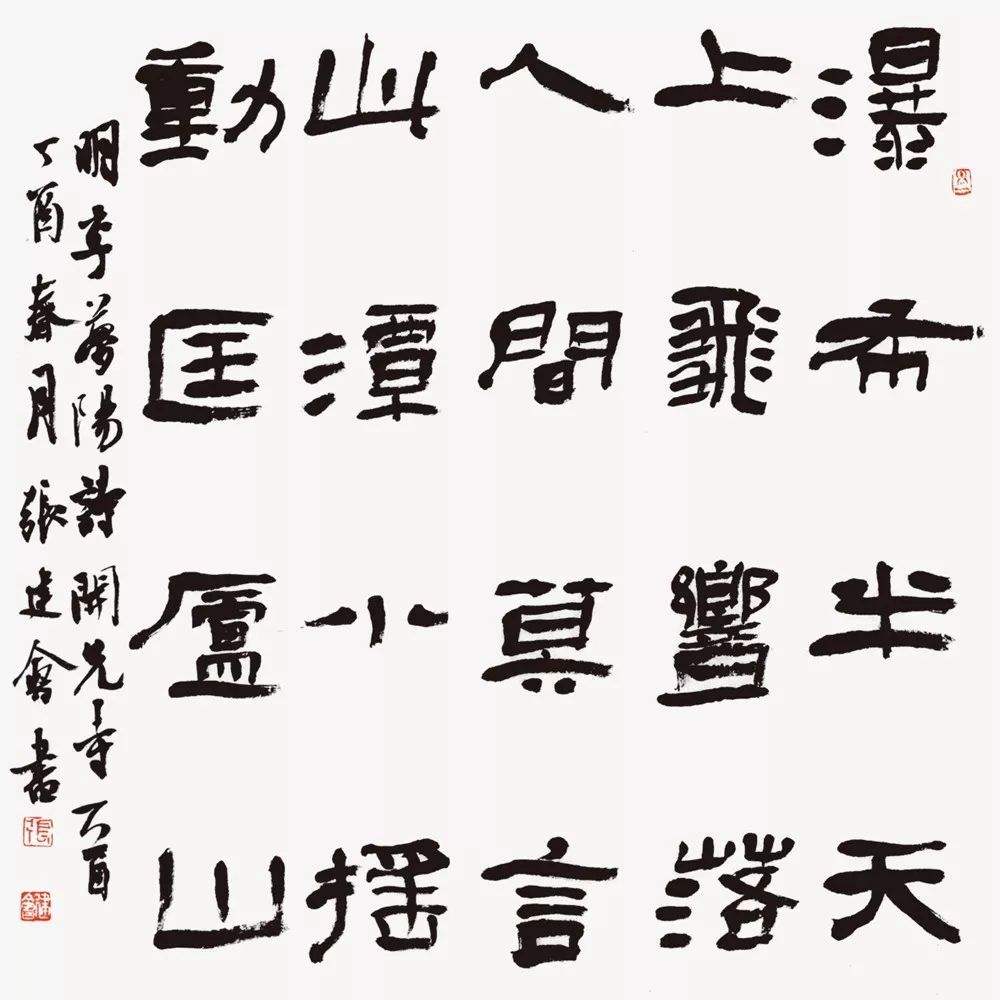 瀑布半天
上飛響落
人間莫言
此潭小搖
動匡廬山
明李夢陽詩開先寺
丁酉春月張建會書
張
建會